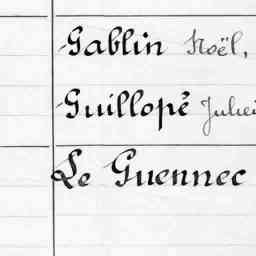 Gablin Noël,
Guillopé Julie
Le Guennec